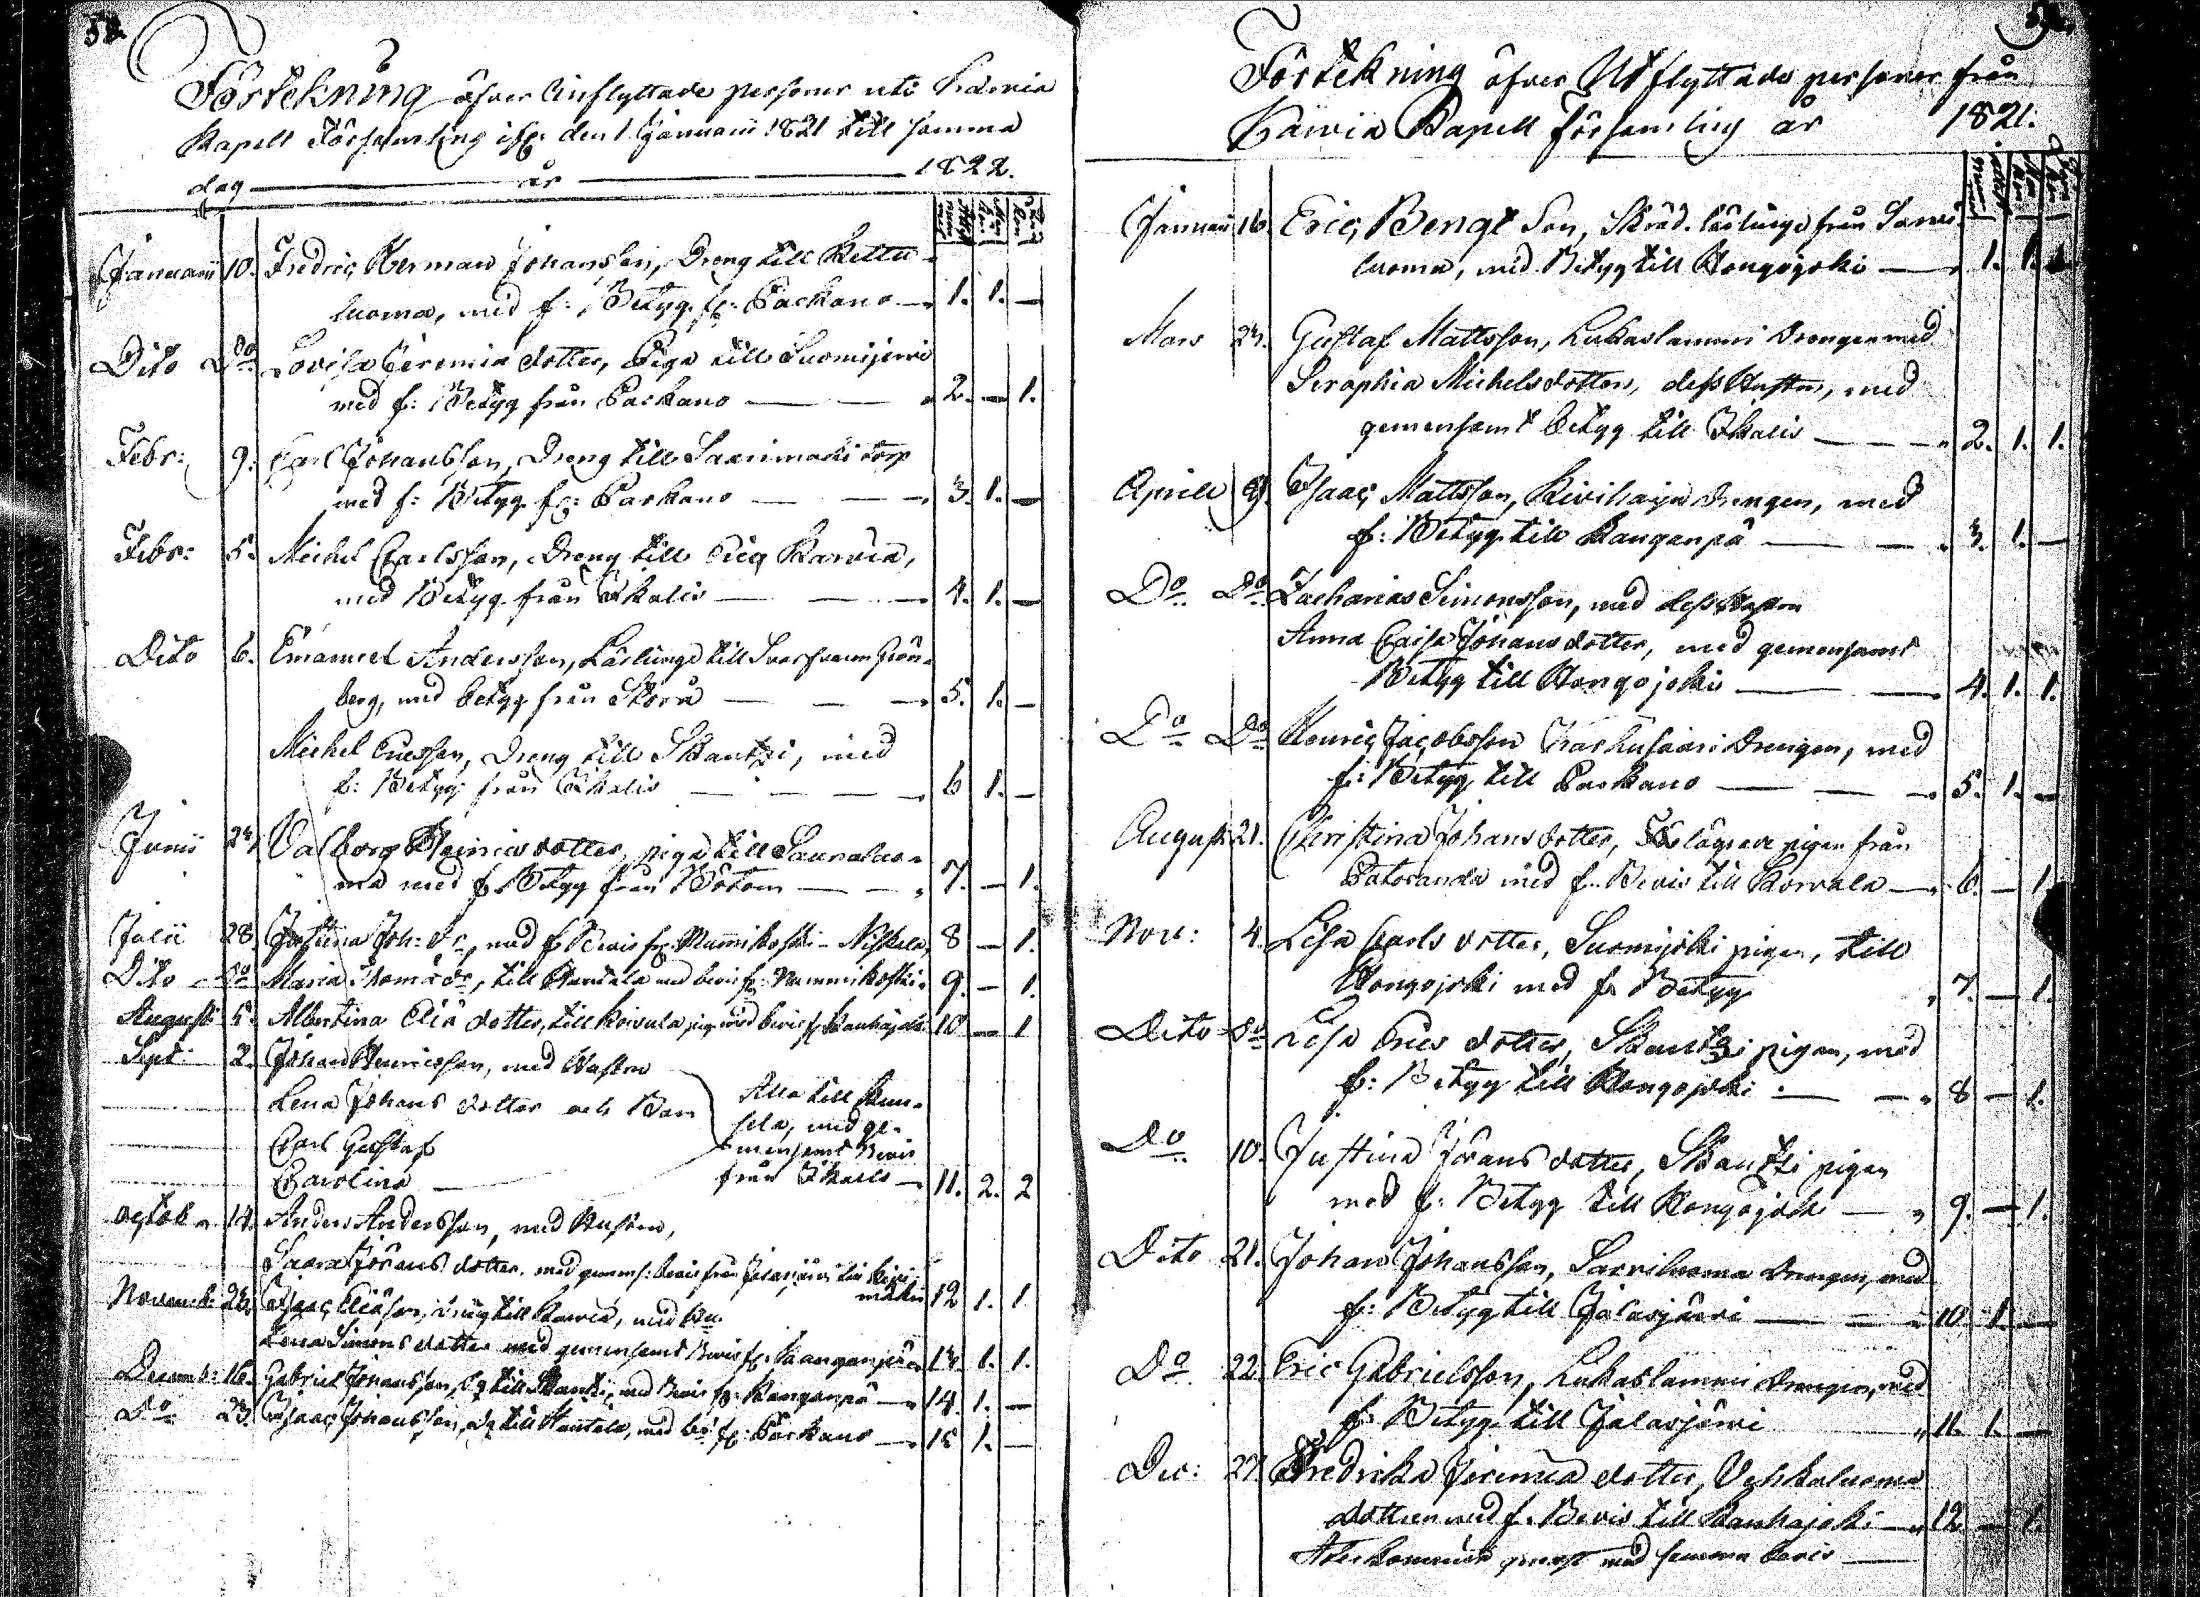 52.
Förtekning öfver Inflyttade personer uti Kärwia
Kapell Församling ifr: den 1 Januarii 1821 till samma
dag år 1822.
Januarii 10. Fredric Herman Johansson, Dreng till Kettu-
luoma, med f: Betyg fr: Parkano — 1. 1. —
Dito Do Lovisa Jeremiæ dotter, Piga till Suomijervi
med f: Betyg från Parkano — 2. — 1.
Febr: 9. Carl Johansson, Dreng till Saarimaki torp
med f: Betyg fr: Parkano — 3. 1. —
Febr: 5. Michel Carlsson, Dreng till Eric Karvia,
med Betyg från Ikalis — 4. 1. —
Dito 6. Emanuel Andersson, Lärlinge till Svarfvaren Grön-
berg, med betyg från Storå — 5. 1. —
Michel Ericsson, Dreng till Skantzi, med
f: Betyg från Ikalis — 6 1. —
Junii Valborg Henrics dotter, piga till Saunaluo-
ma med f. Betyg från Bötom — 7. — 1.
Julii 28. Justina Joh: dr, med f. Bevis fr. Nummikoski - Niskala, 8 — 1.
Dito Do Maria Thomæ dr, till Hantala med bevis fr: Nummikoski. 9. — 1.
August: 5. Albertina Eliæ dotter, till Koivula piga med bevis fr Kauhajoki 10 — 1
Sept: 2. Johan Henricsson, med Hustru
Lena Johans dotter och Barn Alla till Kun-
sela, med ge-
Carl Gustaf mensamt Bevis
Carolina — från Ikalis — 11. 2. 2
Octob. 14. Anders Andersson, med Hustru,
Saara Jörans dotter. med gemens: bevis från Jalasjärvi till Kivi-
mäki 12 1. 1
Novemb: Isaac Eliæson, dräng till Karvia, med Hu.
Lena Simons dotter med gemensamt Bevis fr. Kanganpää 13. 1. 1.
Decemb: 16. Gabriel Johansson, dg till Skantzi, med Bevis fr: Kanganpä — 14. 1. —
Do 23. Isaac Johansson, dg till Hantala, med bes fr: Parkano — 15 1. —
Förtekning öfver Utflyttade personer från
Kärwiä Kapell Församling år 1821.
Januarii 16. Eric Bengt Son, Skräd. lärlinge från Sarvi-
luoma, med Betyg till Hongojoki — 1. 1.
Mars Gustaf Mattsson, Lukaslammi Drengen med
Seraphia Michelsdotter, dess Hustru, med
gemensamt betyg till Ikalis — 2. 1. 1.
Aprill 9. Isaac Mattsson, Kivihaijn Drengen, med
f: Betyg till Kanganpä — 3. 1. —
Do Do Zacharias Simonsson, med dess Hustru
Anna Caisa Johans dotter, med gemensamt
Betyg till Hongojoki — 4. 1. 1.
Do Do Henric Jacobsson Drengen, med
f: Betyg till Parkano — 5. 1. —
August: 21. Christina Johans dotter, pigan från
med f. Bevis till — 6. — 1.
Nov: 4. Lisa Carls dotter, Suomijoki pigan, till
Hongojoki med f. Betyg 7. — 1.
Dito Do Lisa Erics dotter, Skantzi pigan, med
f: Betyg till Hongojoki — 8 — 1.
Do 10. Justina Jörans dotter, Skantzi pigan
med f: Betyg till Hongojoki — 9. — 1.
Dito 21. Johan Johansson, Sarviluoma Drengen, med
f: Betyg till Jalasjärvi — 10 1. —
Do 22. Eric Gabrielsson, Lukaslammi Drengen, med
f. Betyg till Jalasjärvi 11. 1. —
Dec: 27. Fredrika Jeremiæ dotter, Vehkaluoma
dottren med f. Bevis till Kauhajoki — 12. — 1.
Återkommit genast med samma bevis —